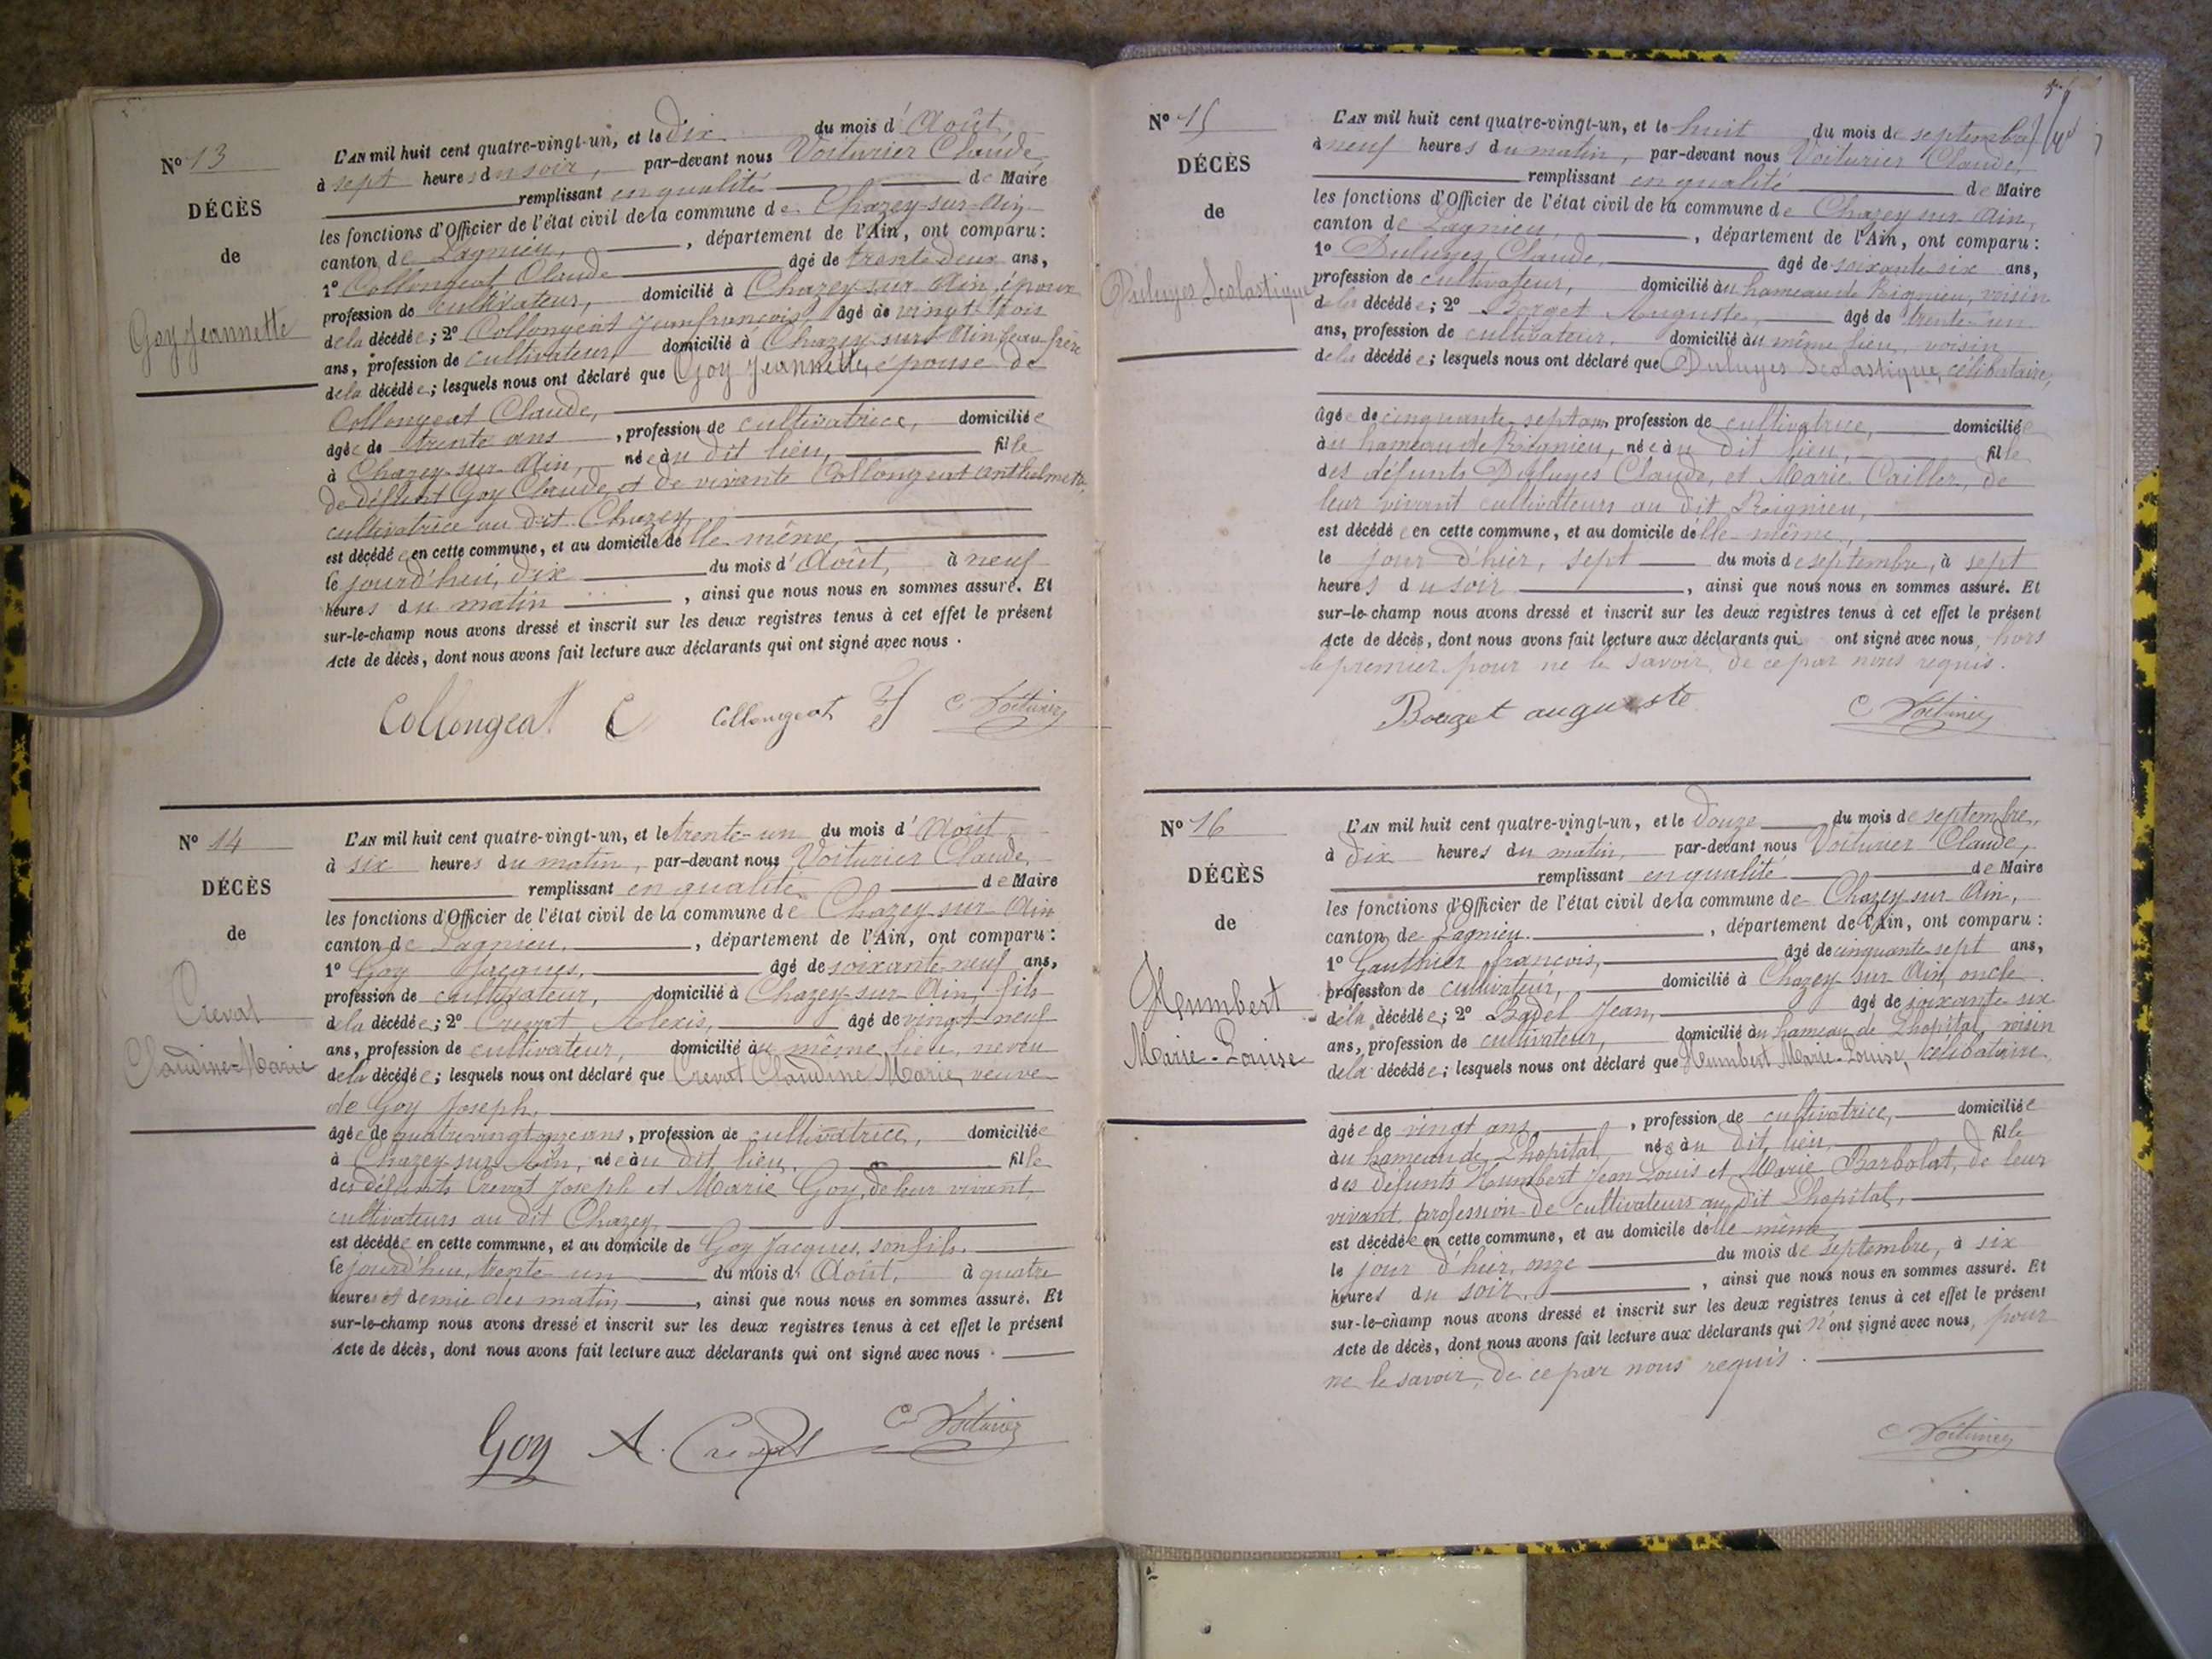 N° 13
DÉCÈS
de
Goy Jeannette
L'AN mil huit cent quatre-vingt-un, et le dix du mois d'Août
à sept heures du soir, par-devant nous Voiturier Claude,
remplissant en qualité de Maire
les fonctions d'Officier de l'état civil de la commune de Chazey-sur-Ain
canton de Lagnieu, , département de l'Ain, ont comparu :
1° Collongeat Claude âgé de trente deux ans,
profession de cultivateur, domicilié à Chazey-sur-Ain, époux
de la décédée ; 2° Collongeat Jean françois, âgé de vingt-trois
ans, profession de cultivateur, domicilié à Chazey sur Ain beau-frère
de la décédée ; lesquels nous ont déclaré que Goy Jeannette, épouse de
Collongeat Claude,
âgée de trente ans , profession de cultivatrice, domiciliée
à Chazey-sur-Ain, née au dit lieu, fille
de défunt Goy Claude, et de vivante Collongeat Anthelmette,
cultivatrice au dit Chazey,
est décédée en cette commune, et au domicile de elle même,
le jourd'hui, dix du mois d'Août, à neuf
heures du matin , ainsi que nous nous en sommes assuré. Et
sur-le-champ nous avons dressé et inscrit sur les deux registres tenus à cet effet le présent
Acte de décès, dont nous avons fait lecture aux déclarants qui ont signé avec nous.
Collongeat C Collongeat C Voiturier
N° 14
DÉCÈS
de
Crevat
Claudine-Marie
L'AN mil huit cent quatre-vingt-un, et le trente-un du mois d'Août
à six heures du matin, par-devant nous Voiturier Claude,
remplissant en qualité de Maire
les fonctions d'Officier de l'état civil de la commune de Chazey-sur-Ain
canton de Lagnieu, , département de l'Ain, ont comparu :
1° Goy Jacques, âgé de soixante-neuf ans,
profession de cultivateur, domicilié à Chazey-sur-Ain, fils
de la décédée ; 2° Crevat Alexis, âgé de vingt-neuf
ans, profession de cultivateur, domicilié au même lieu, neveu
de la décédée ; lesquels nous ont déclaré que Crevat Claudine Marie, veuve
de Goy Joseph,
âgée de quatrevingt onze ans, profession de cultivatrice, domiciliée
à Chazey-sur-Ain, née au dit lieu, fille
des défunts Crevat Joseph et Marie Goy, de leur vivant,
cultivateurs au dit Chazey,
est décédée en cette commune, et au domicile de Goy Jacques, son fils,
le jourd'hui, trente un du mois d'Août, à quatre
heures et demie du matin , ainsi que nous nous en sommes assuré. Et
sur-le-champ nous avons dressé et inscrit sur les deux registres tenus à cet effet le présent
Acte de décès, dont nous avons fait lecture aux déclarants qui ont signé avec nous.
Goy A. Crevat C Voiturier
N° 15
DÉCÈS
de
Duluyes Scolastique
L'AN mil huit cent quatre-vingt-un, et le huit du mois de septembre
à neuf heures du matin, par-devant nous Voiturier Claude,
remplissant en qualité de Maire
les fonctions d'Officier de l'état civil de la commune de Chazey sur Ain,
canton de Lagnieu, , département de l'Ain, ont comparu :
1° Duluyes Claude, âgé de soixante six ans,
profession de cultivateur, domicilié au hameau de Rignieu, voisin
de la décédée ; 2° Borget Auguste, âgé de trente-un
ans, profession de cultivateur, domicilié au même lieu, voisin
de la décédée ; lesquels nous ont déclaré que Duluyes Scolastique, célibataire,
âgée de cinquante septans, profession de cultivatrice, domiciliée
au hameau de Rignieu, née au dit lieu, fille
des défunts Duluyes Claude, et Marie Cailler, de
leur vivant cultivateurs au dit Rignieu,
est décédée en cette commune, et au domicile d'elle-même,
le jour d'hier, sept du mois de septembre, à sept
heures du soir , ainsi que nous nous en sommes assuré. Et
sur-le-champ nous avons dressé et inscrit sur les deux registres tenus à cet effet le présent
Acte de décès, dont nous avons fait lecture aux déclarants qui ont signé avec nous, hors
le premier pour ne le savoir, de ce par nous requis.
Bouget auguste C Voiturier
N° 16
DÉCÈS
de
Humbert
Marie-Louise
L'AN mil huit cent quatre-vingt-un, et le douze du mois de septembre,
à dix heures du matin, par-devant nous Voiturier Claude,
remplissant en qualité de Maire
les fonctions d'Officier de l'état civil de la commune de Chazey-sur-Ain,
canton de Lagnieu. , département de l'Ain, ont comparu :
1° Gauthier françois, âgé de cinquante sept ans,
profession de cultivateur, domicilié à Chazey-sur-Ain, oncle
de la décédée ; 2° Badel Jean, âgé de soixante six
ans, profession de cultivateur, domicilié au hameau de Lhopital, voisin
de la décédée ; lesquels nous ont déclaré que Humbert Marie-Louise, célibataire
âgée de vingt ans , profession de cultivatrice, domiciliée
au hameau de Lhopital, née au dit lieu, fille
des défunts Humbert Jean Louis et Marie Barbolat, de leur
vivant, profession de cultivateurs au dit Lhopital,
est décédée en cette commune, et au domicile d'elle-même
le jour d'hier, onze du mois de septembre, à six
heures du soir. , ainsi que nous nous en sommes assuré. Et
sur-le-champ nous avons dressé et inscrit sur les deux registres tenus à cet effet le présent
Acte de décès, dont nous avons fait lecture aux déclarants qui n'ont signé avec nous, pour
ne le savoir, de ce par nous requis.
C Voiturier